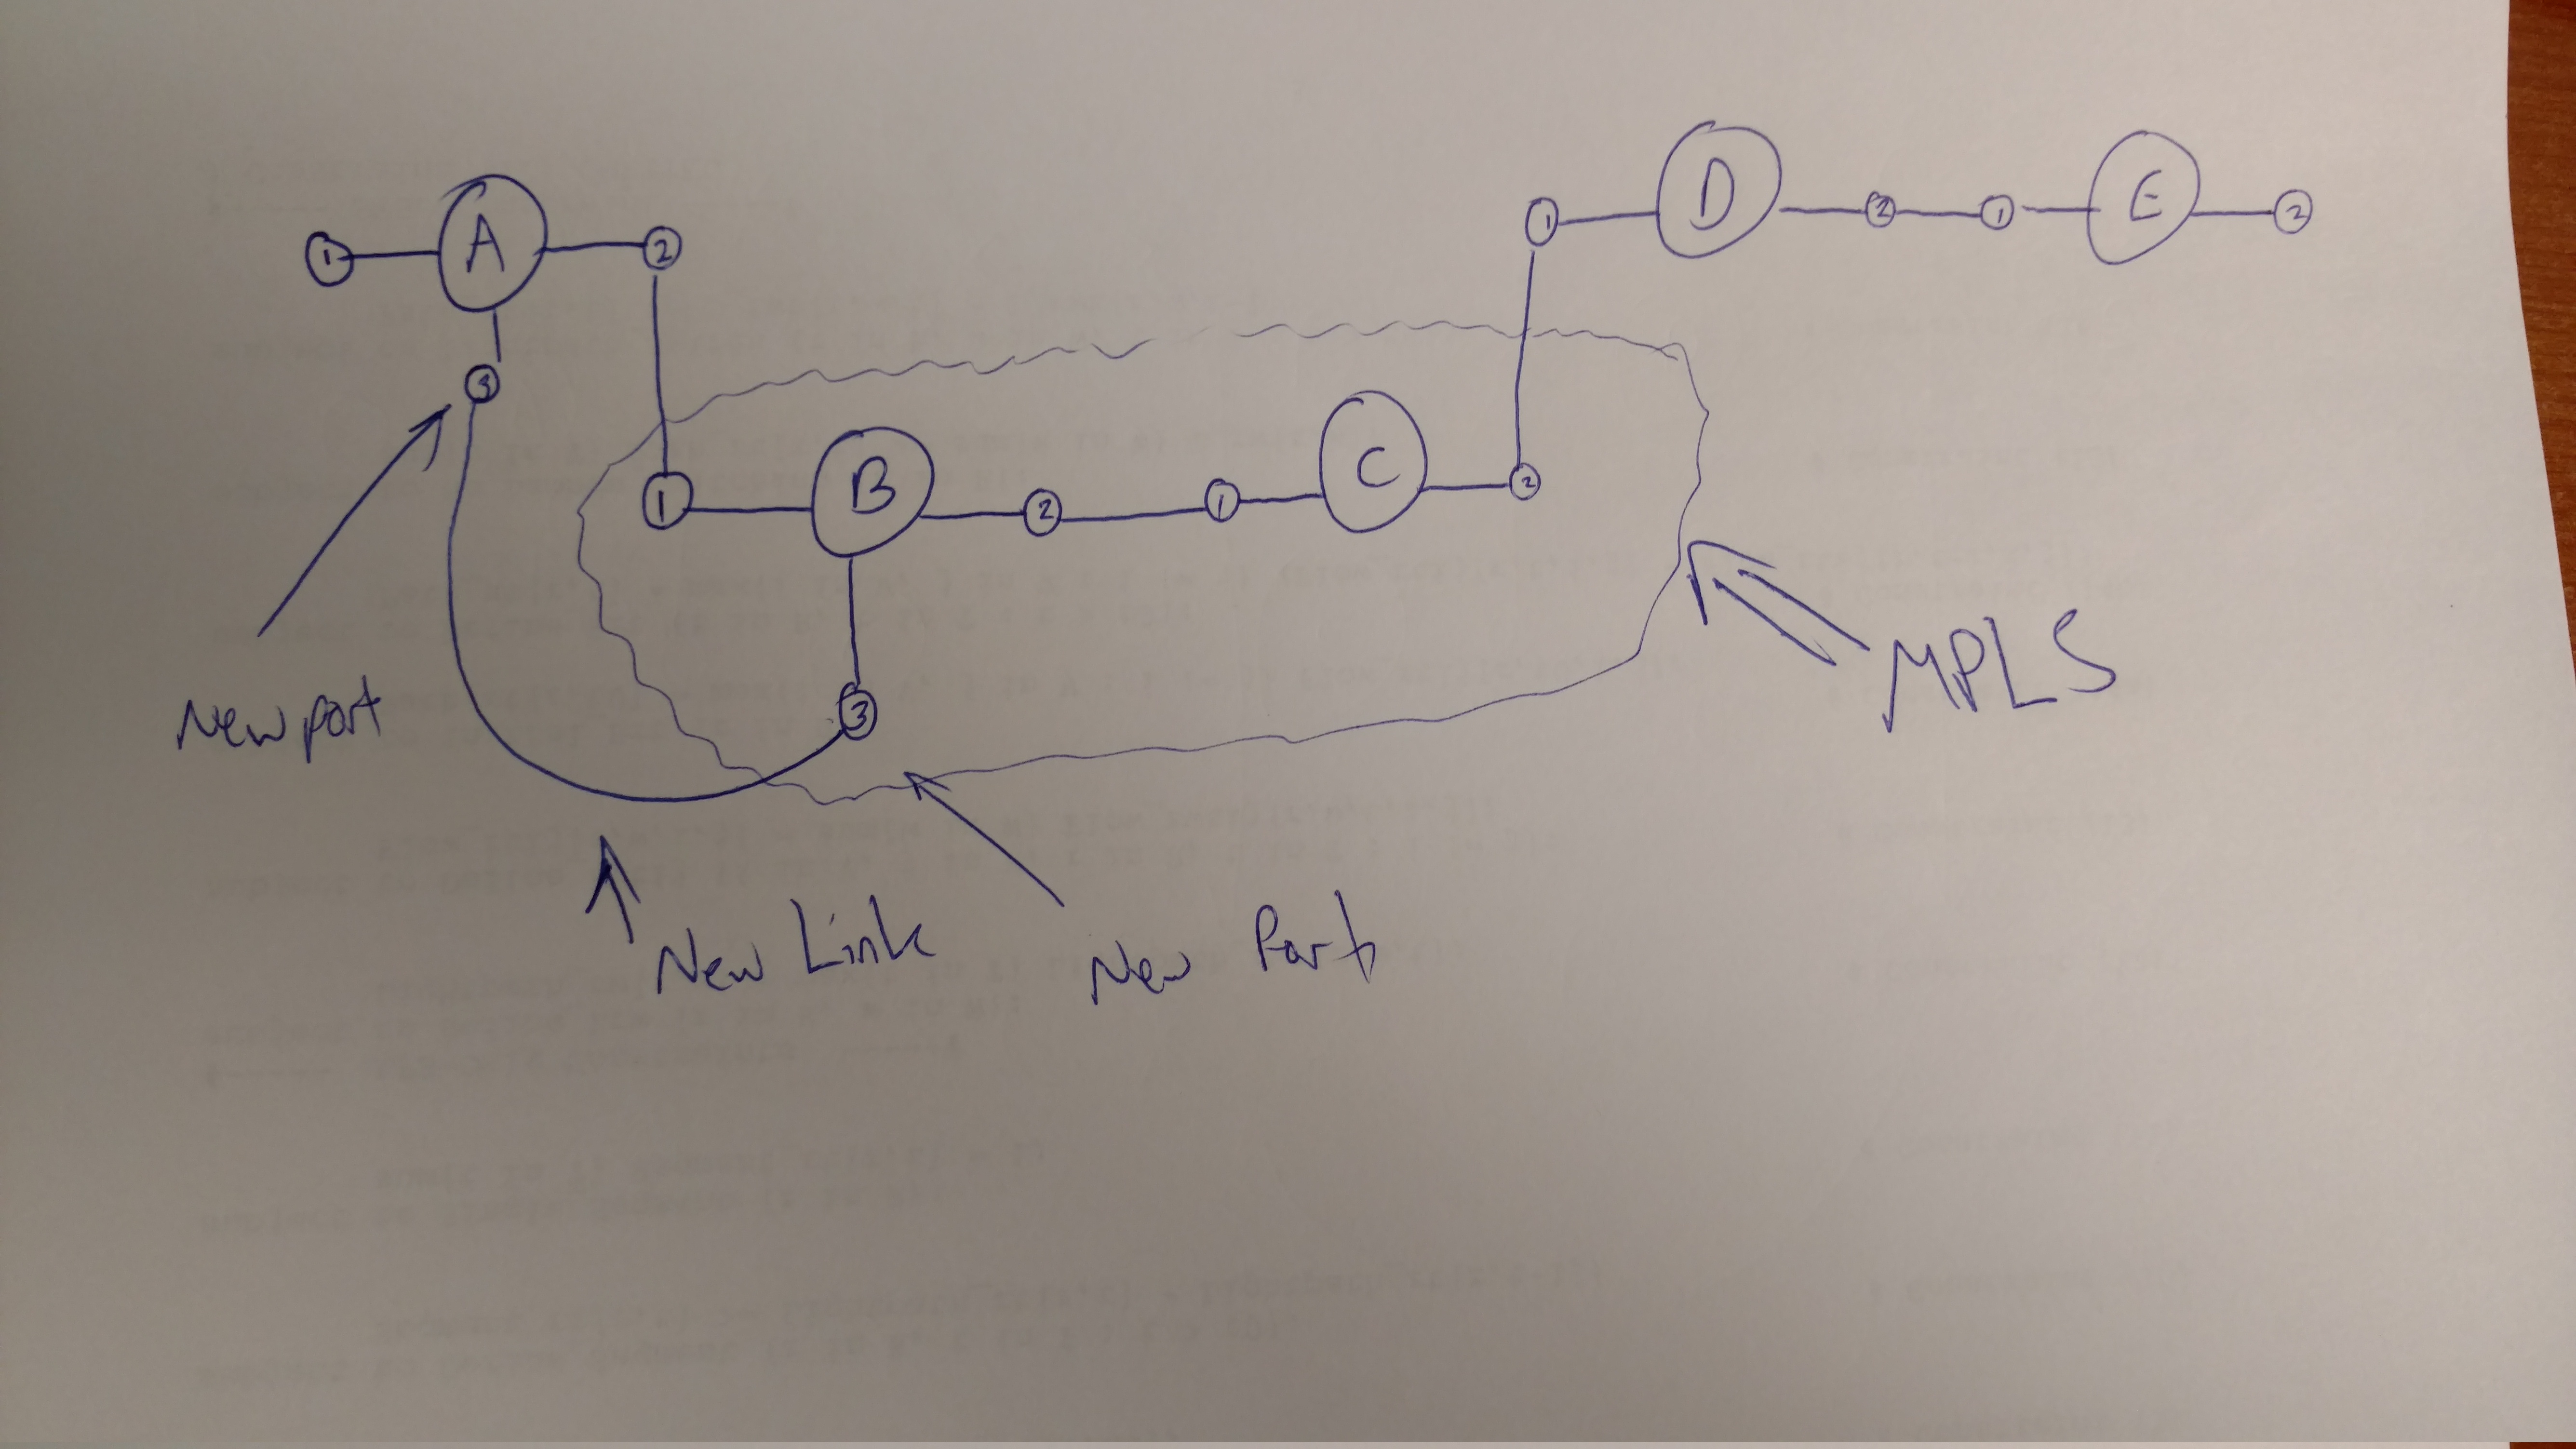 D
E
A
1
2
1
2
1
2
3
C
B
1
2
1
2
3
New port
MPLS
New Link
New Port